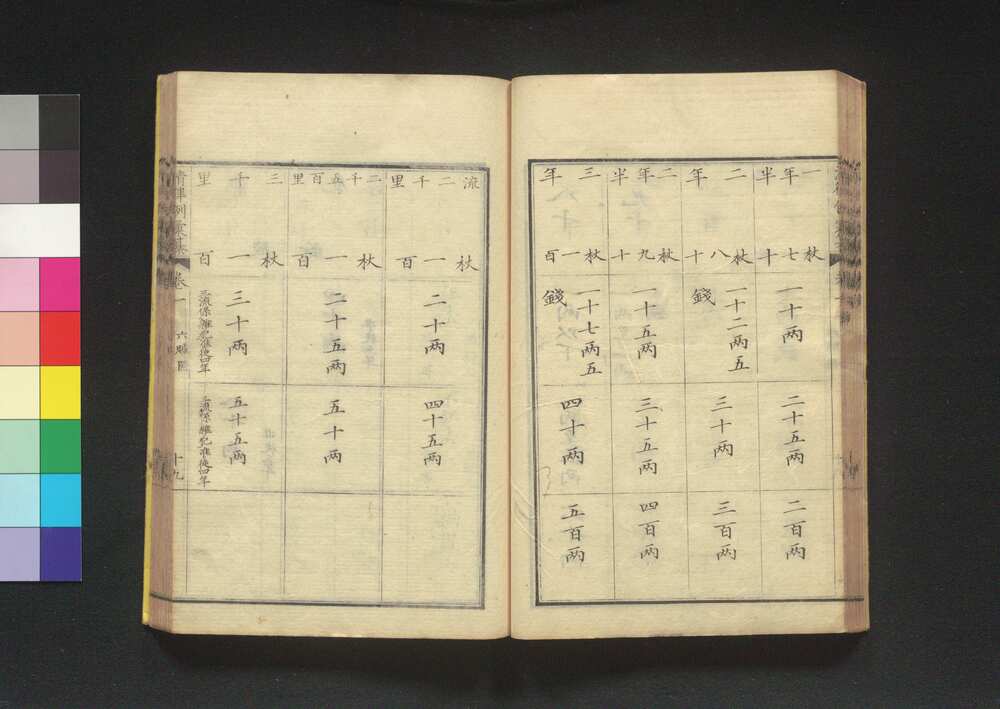 一年半
杖七十
一十两
二十五两
二百两
二年
杖八十
一十二两五
錢
三十两
三百两
二年半
杖九十
一十五两
三十五两
四百两
三年
杖一百
一十七两五
錢
四十两
五百两
流二千里
杖一百
二十两
四十五两
二千五百里
杖一百
二十五两
五十两
三千里
杖一百
三十两
三流係雜犯准徒四年
五十五两
三流係雜犯准徒四年
卷一
十九